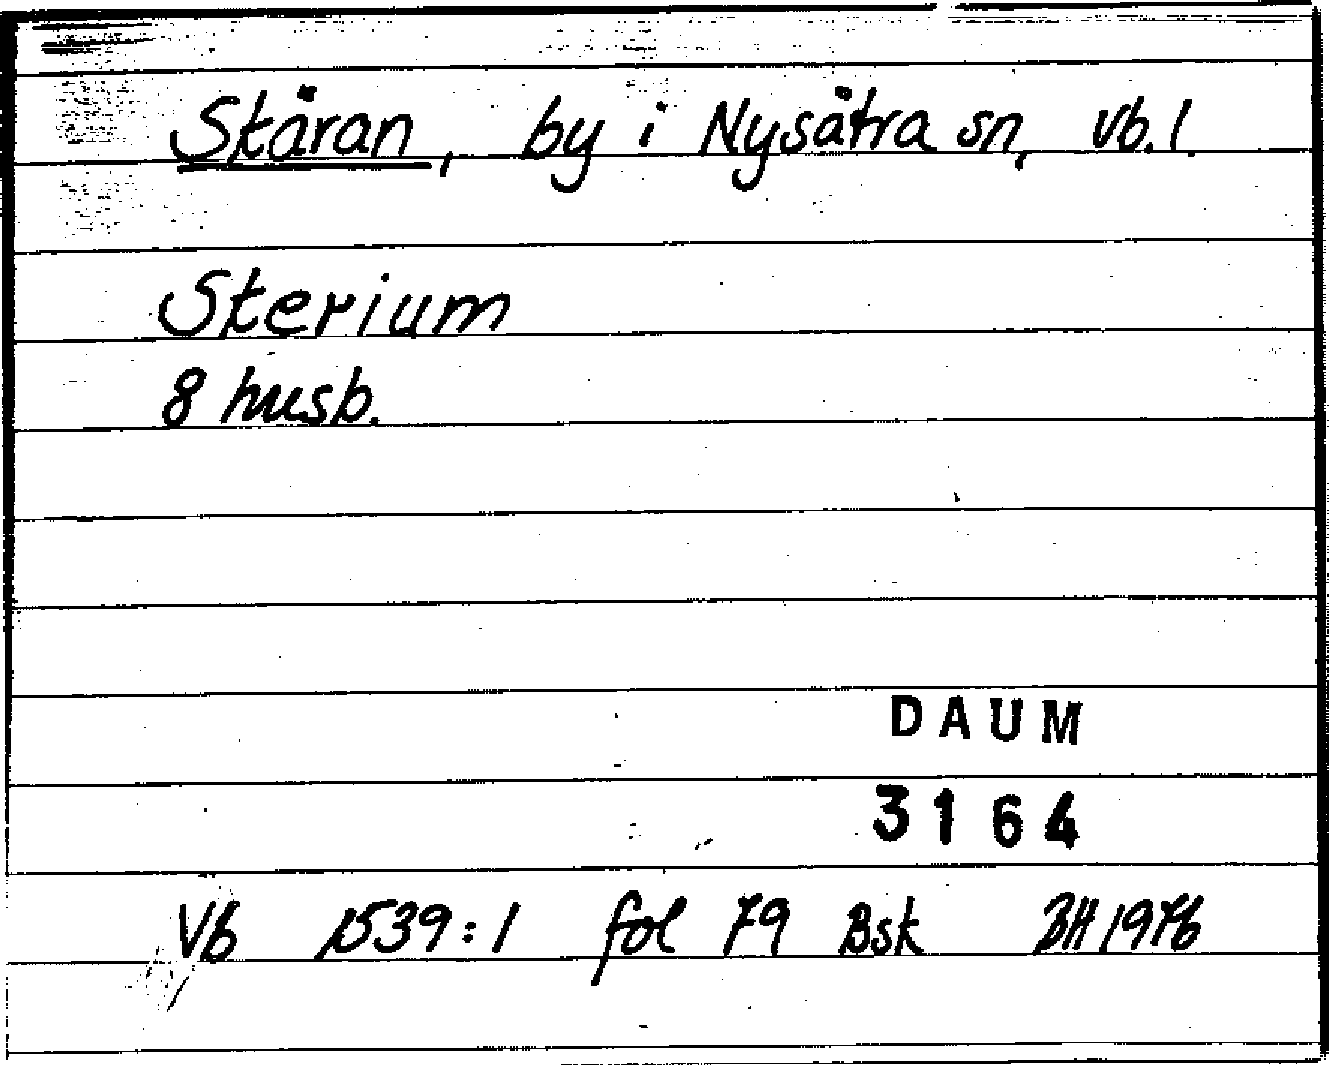 Skäran, by i Nysätra sn, Vb. l.
Skerium
8 husb.
DAUM
3164
Vb 1539:1 fol 79 Bsk BH 1976